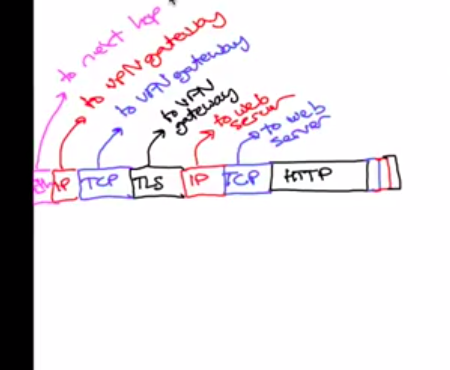 to next hop
to VPN gateway
to VPN gateway
to VPN
gateway
to web
server
to web
server
IP TCP TLS IP TCP HTTP